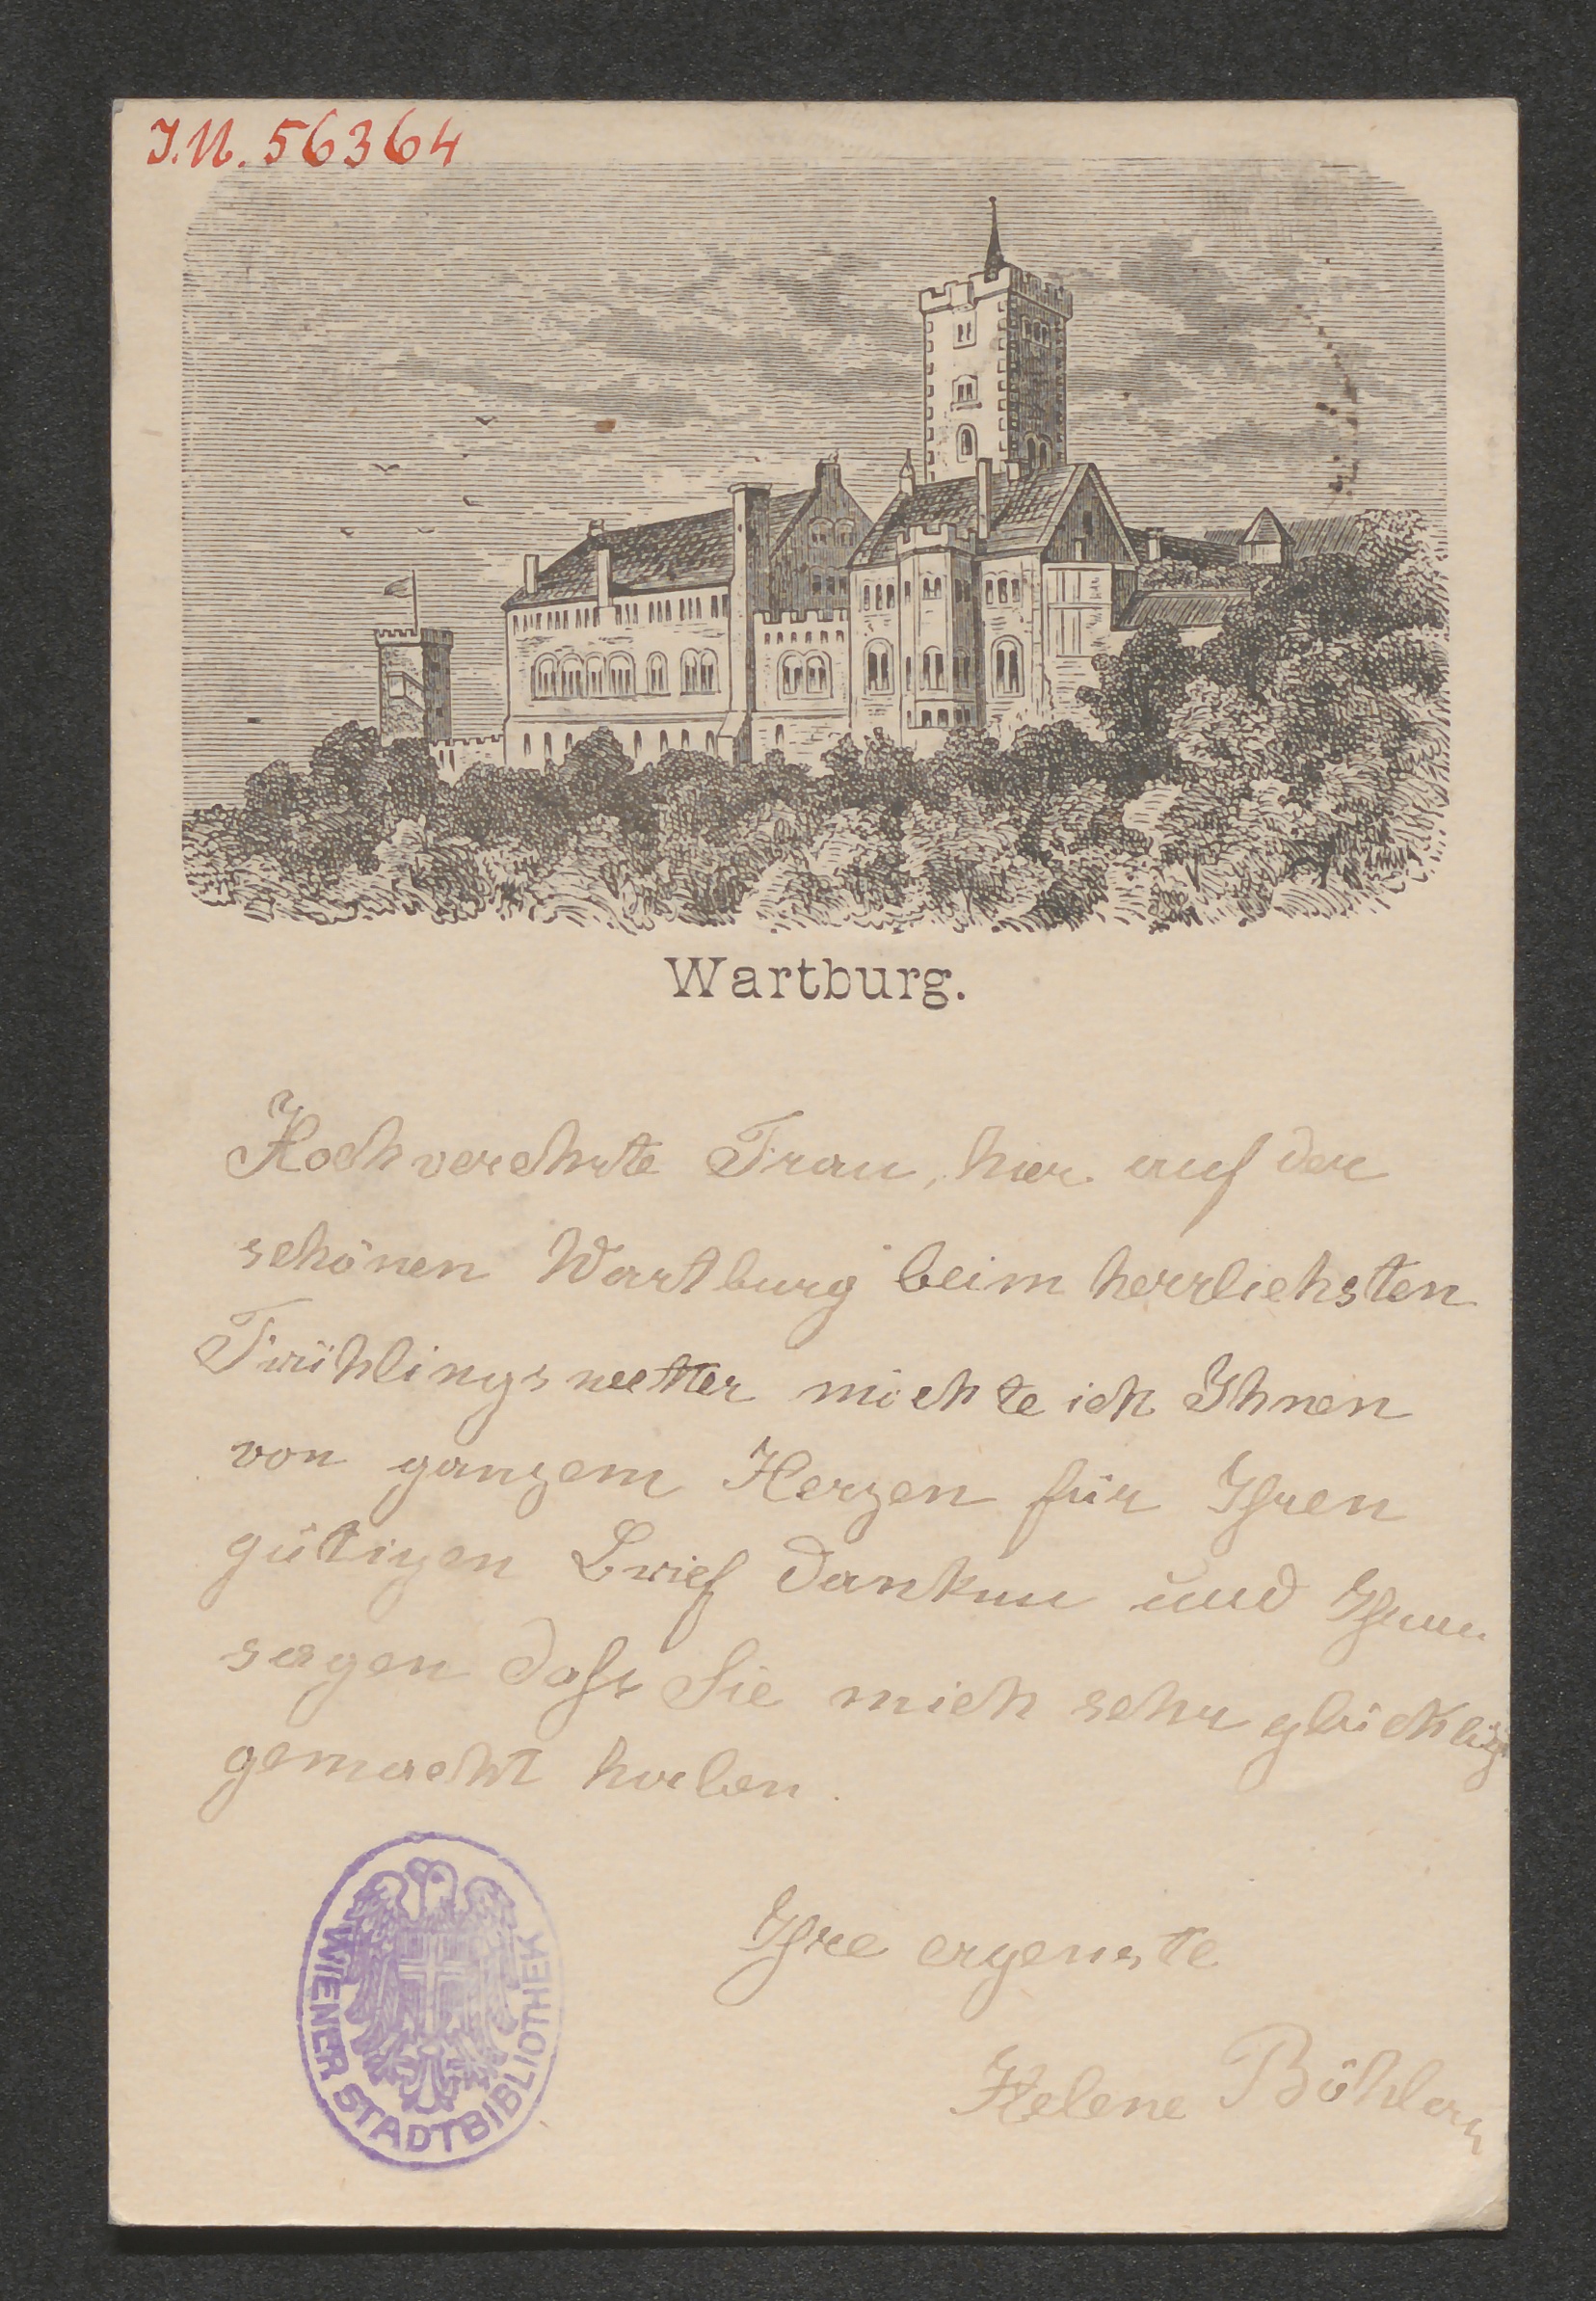 J.N. 56364
Wartburg.
Hochverehrte Frau, hier auf der
schönen Wartburg beim herrlichsten
Frühlingswetter möchte ich Ihnen
von ganzem Herzen für Ihren
gütigen Brief danken und Ihnen
sagen dass Sie mich sehr glücklich
gemacht haben.
Ihre ergenste
Helene Böhlau
WIENER STADTBIBLIOTHEK